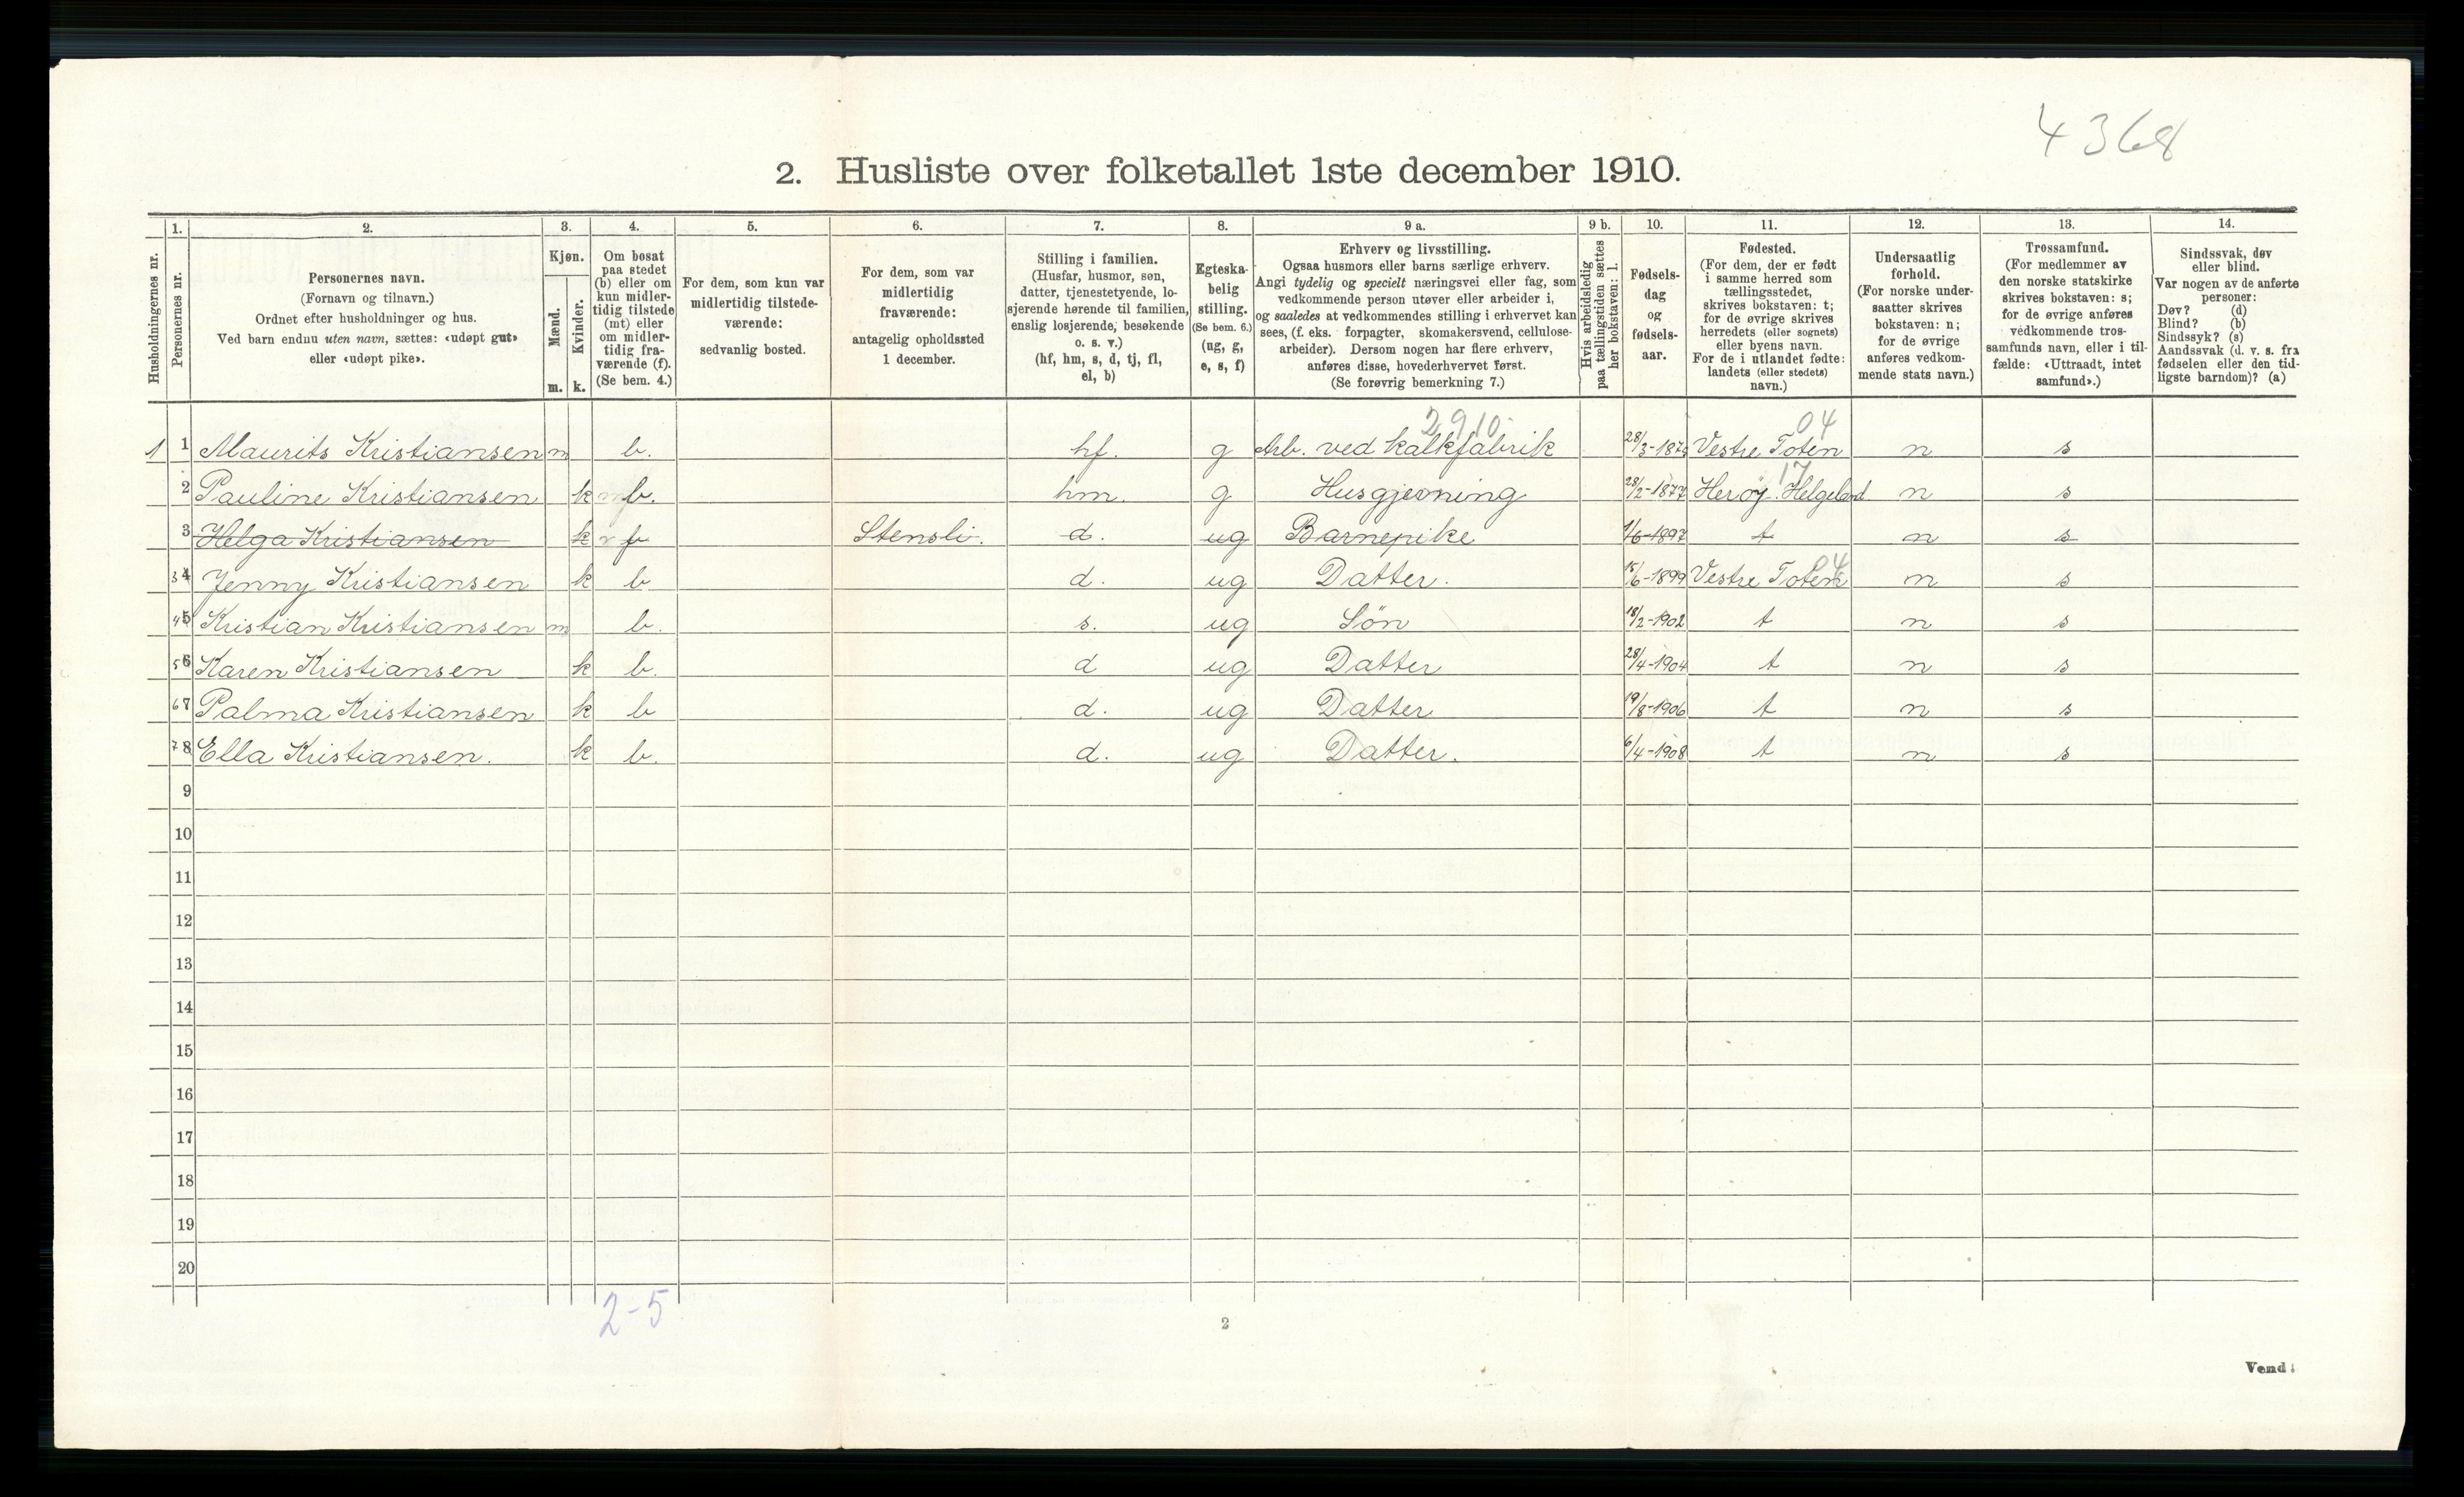 4368
2. Husliste over folketallet 1ste december 1910.
Husholdningernes nr.
1.
Personernes nr.
2.
Personernes navn.
(Fornavn og tilnavn.)
Ordnet efter husholdninger og hus.
Ved barn endnu uten navn, sættes: «udøpt gut»
eller «udøpt pike».
3.
Kjøn.
Mænd.
m.
Kvinder.
k.
4.
Om bosat
paa stedet
(b) eller om
kun midler-
tidig tilstede
(mt) eller
om midler-
tidig fra-
værende (f).
(Se bem. 4.)
5.
For dem, som kun var
midlertidig tilstede-
værende:
sedvanlig bosted.
6.
For dem, som var
midlertidig
fraværende:
antagelig opholdssted
1 december.
7.
Stilling i familien.
(Husfar, husmor, søn,
datter, tjenestetyende, lo-
sjerende hørende til familien,
enslig losjerende, besøkende
o. s. v.)
(hf, hm, s, d, tj, fl,
el, b)
8.
Egteska-
belig
stilling.
(Se bem. 6.)
(ug, g,
e, s, f)
9 a.
Erhverv og livsstilling.
Ogsaa husmors eller barns særlige erhverv.
Angi tydelig og specielt næringsvei eller fag, som
vedkommende person utøver eller arbeider i,
og saaledes at vedkommendes stilling i erhvervet kan
sees, (f. eks. forpagter, skomakersvend, cellulose-
arbeider). Dersom nogen har flere erhverv,
anføres disse, hovederhvervet først.
(Se forøvrig bemerkning 7.)
9 b.
Hvis arbeidsledig
paa tællingstiden sættes
her bokstaven: l.
10.
Fødsels-
dag
og
fødsels-
aar.
11.
Fødested.
(For dem, der er født
i samme herred som
tællingsstedet,
skrives bokstaven: t;
for de øvrige skrives
herredets (eller sognets)
eller byens navn.
For de i utlandet fødte:
landets (eller stedets)
navn.)
12.
Undersaatlig
forhold.
(For norske under-
saatter skrives
bokstaven: n;
for de øvrige
anføres vedkom-
mende stats navn.)
13.
Trossamfund.
(For medlemmer av
den norske statskirke
skrives bokstaven: s;
for de øvrige anføres
vedkommende tros-
samfunds navn, eller i til-
fælde: «Uttraadt, intet
samfund».)
14.
Sindssvak, døv
eller blind.
Var nogen av de anførte
personer:
Døv? (d)
Blind? (b)
Sindssyk? (s)
Aandssvak (d. v. s. fra
fødselen eller den tid-
ligste barndom)? (a)
2910 04
1 1 Maurits Kristiansen m b. hf. g Arb. ved kalkfabrik 28/3-187 Vestre Toten n s
17
2 Pauline Kristiansen k b. hm. g Husgjerning 28/2-1877 Herøy. Helgeland n s
3 Helga Kristiansen k f Stensli. d. ug Barnepike 1/6-1897 t n s
04
3 4 Jenny Kristiansen k b d. ug Datter. 15/6-1899 Vestre Toten n s
4 5 Kristian Kristiansen m b. s. ug Søn 18/2-1902 t n s
5 6 Karen Kristiansen k b. d ug Datter 28/4-1904 t n s
6 7 Palma Kristiansen k b d. ug Datter 19/8-1906 t n s
7 8 Ella Kristiansen. k b. d. ug Datter. 6/4-1908 t n s
9
10
11
12
13
14
15
16
17
18
19
20
2-5
2
Vend!